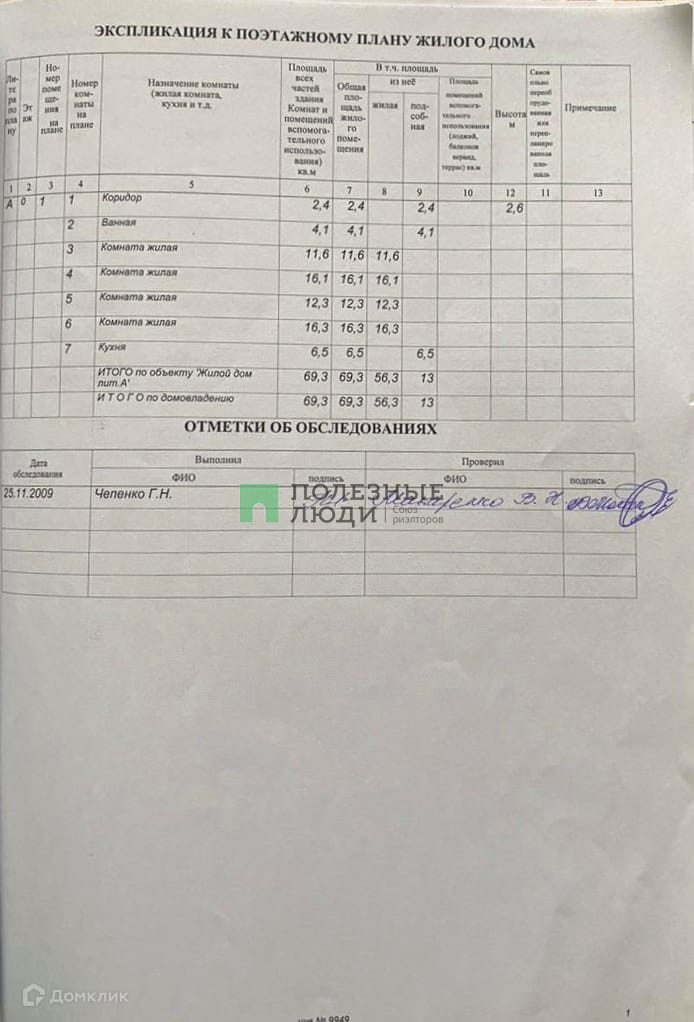 ЭКСПЛИКАЦИЯ К ПОЭТАЖНОМУ ПЛАНУ ЖИЛОГО ДОМА
Ли-
те
ра
по
пла
ну
Эт
аж
Но-
мер
поме
ще-
ния
на
плане
Номер
ком-
наты
на
плане
Назначение комнаты
(жилая комната,
кухня и т.д.
Площадь
всех
частей
здания
Комнат и
помещений
вспомога-
тельного
использо-
вания)
кв.м
В т.ч. площадь
Общая
пло-
щадь
жило-
го
поме-
щения
из неё
жилая
под-
соб-
ная
Площадь
помещений
вспомога-
тельного
использования
(лоджий,
балконов
веранд,
террас) кв.м
Высота
м
Самов
ольно
переоб
орудо-
ванная
или
переп-
ланиро
ванная
пло-
щадь
Примечание
1 2 3 4 5 6 7 8 9 10 12 11 13
А 0 1 1 Коридор 2,4 2,4 2,4 2,6
2 Ванная 4,1 4,1 4,1
3 Комната жилая 11,6 11,6 11,6
4 Комната жилая 16,1 16,1 16,1
5 Комната жилая 12,3 12,3 12,3
6 Комната жилая 16,3 16,3 16,3
7 Кухня 6,5 6,5 6,5
ИТОГО по объекту 'Жилой дом
лит.А' 69,3 69,3 56,3 13
И Т О Г О по домовладению 69,3 69,3 56,3 13
ОТМЕТКИ ОБ ОБСЛЕДОВАНИЯХ
Дата
обследования
Выполнил
Проверил
ФИО подпись ФИО подпись
25.11.2009 Чепенко Г.Н.
В. Н
ПОЛЕЗНЫЕ
ЛЮДИ
Союз
риэлторов
Домклик
1